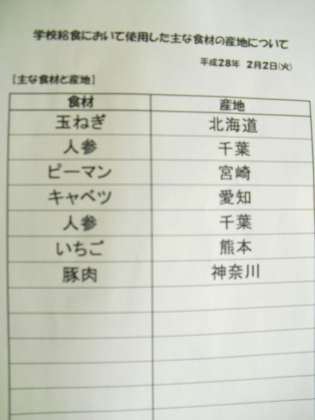 学校給食において使用した主な食材の産地について
平成28年 2月2日(火)
[主な食材と産地]
食材 産地
玉ねぎ 北海道
人参 千葉
ピーマン 宮崎
キャベツ 愛知
人参 千葉
いちご 熊本
豚肉 神奈川